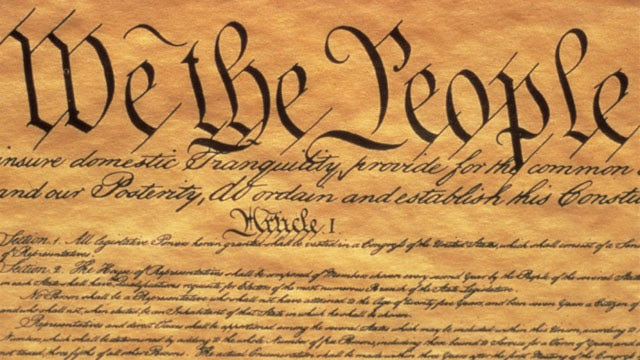 We the People
insure domestic Tranquility, provide for the common
and our Posterity, do ordain and establish this Constit
Article. I.
Section. 1. All legislative Powers herein granted shall be vested in a Congress of the United States, which shall consist of a Sen
of Representatives.
Section. 2. The House of Representatives shall be composed of Members chosen every second Year by the People of the several States
in each State shall have Qualifications requisite for Electors of the most numerous Branch of the State Legislature.
No Person shall be a Representative who shall not have attained to the Age of twenty five Years, and been seven Years a Citizen of
and who shall not, when elected, be an Inhabitant of that State in which he shall be chosen.
Representatives and direct Taxes shall be apportioned among the several States which may be included within this Union, according to
which shall be determined by adding to the whole Number of free Persons, including those bound to Service for a Term of Years, and
three fifths of all other Persons. The actual Enumeration shall be made within three Years after the first